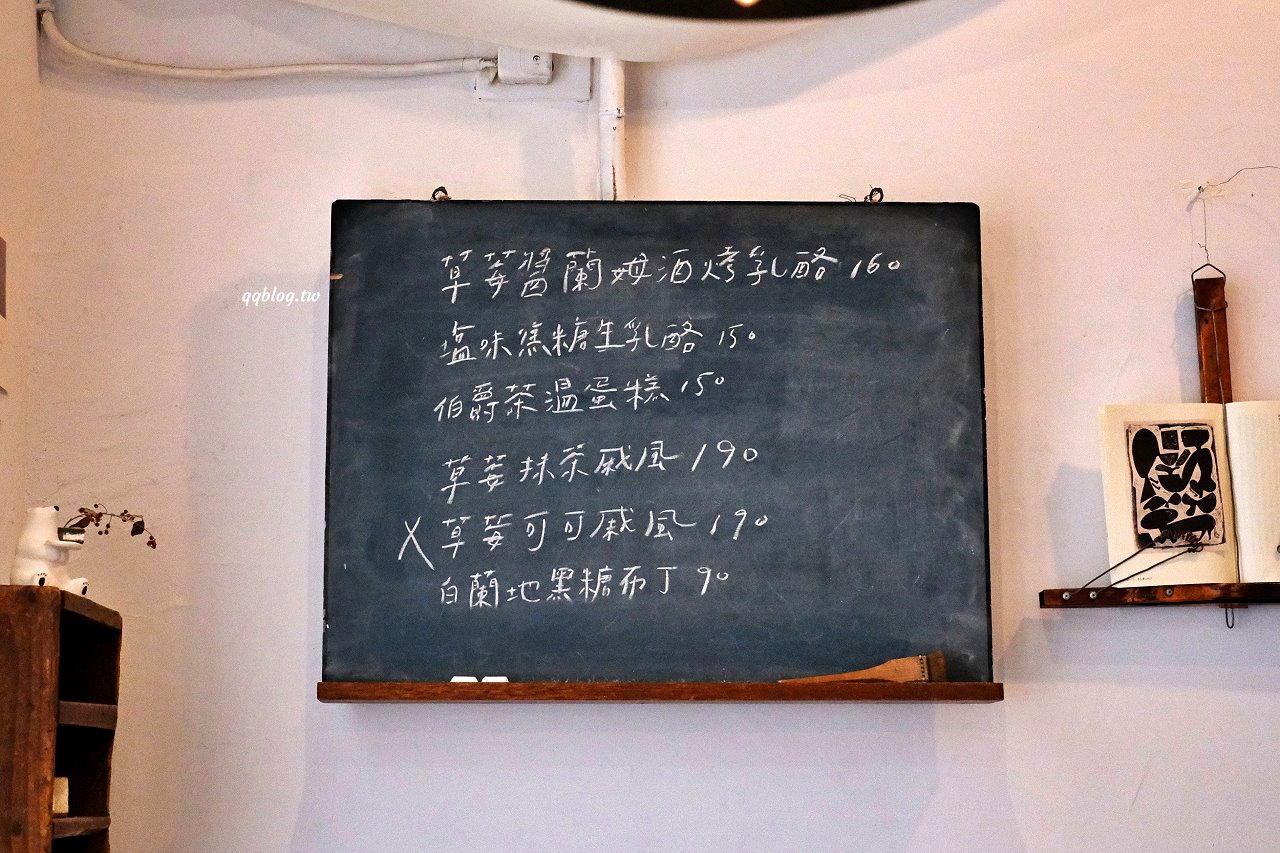 草莓醬蘭姆酒烤乳酪 160
qqblog.tw
塩味焦糖生乳酪 150
伯爵茶温蛋糕 150
草莓抹茶戚風 190
X 草莓可可戚風 190
白蘭地黑糖布丁 90